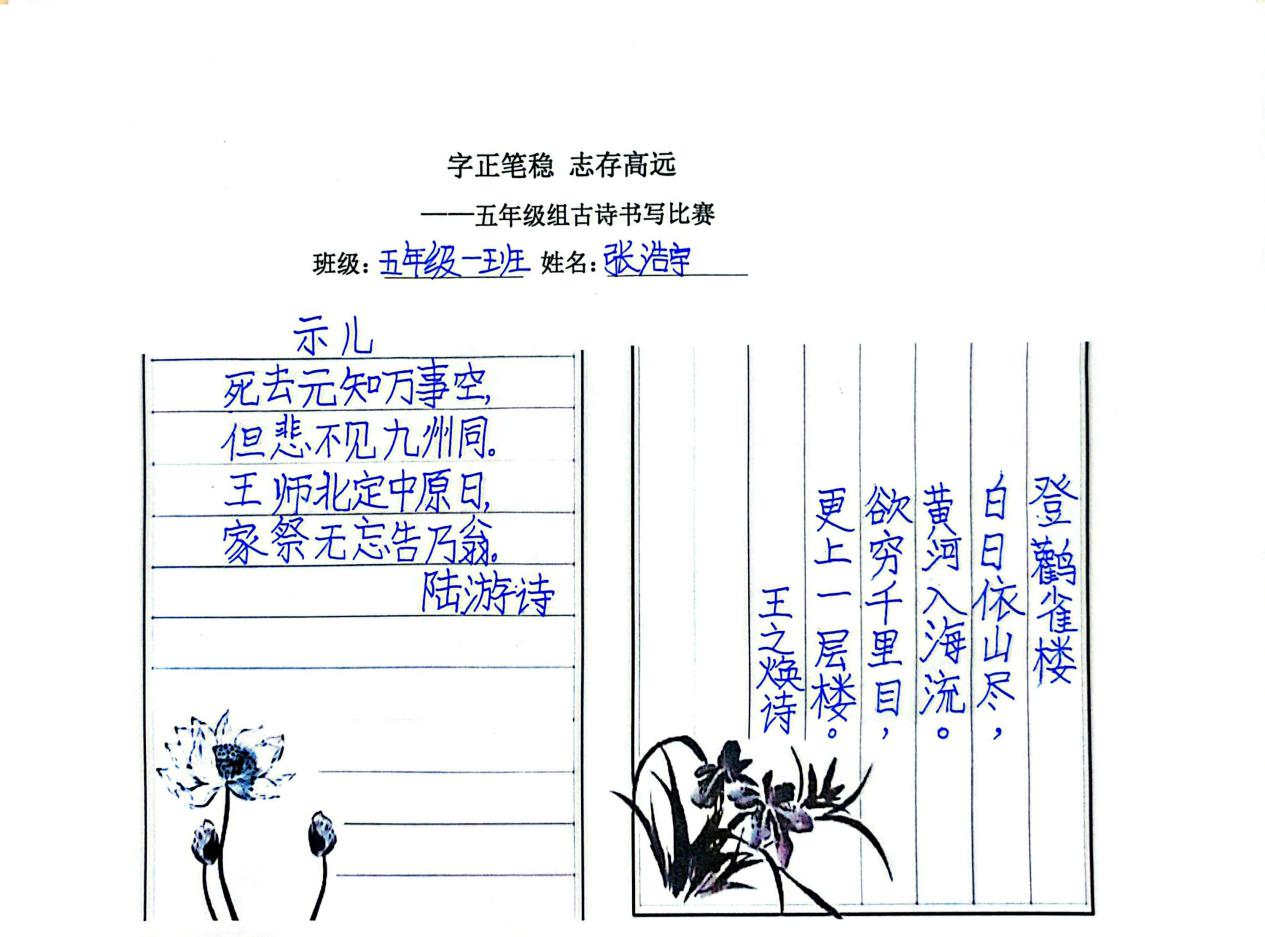 字正笔稳 志存高远
——五年级组古诗书写比赛
班级：五年级一班 姓名：张浩宇
示儿
死去元知万事空，
但悲不见九州同。
王师北定中原日，
家祭无忘告乃翁。
陆游诗
登鹳雀楼
白日依山尽，
黄河入海流。
欲穷千里目，
更上一层楼。
王之焕诗